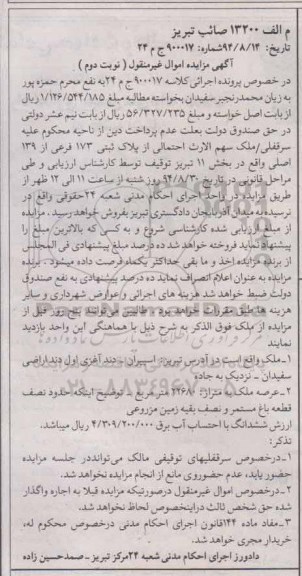 م الف ۱۳۲۰۰ صائب تبریز
تاریخ: ۹۴/۸/۱۴ شماره: ۹۰۰۰۱۷ ج م ۲۴
آگهی مزایده اموال غیرمنقول (نوبت دوم)
در خصوص پرونده اجرائی کلاسه ۹۰۰۰۱۷ ج م ۲۴ به نفع محرم حمزه پور
به زیان محمدرنجبر سفیدان بخواسته مطالبه مبلغ ۱/۱۲۶/۵۴۴/۱۸۵ ریال
از بابت اصل خواسته و مبلغ ۵۶/۳۲۷/۲۳۵ ریال از بابت نیم عشر دولتی
در حق صندوق دولت بعلت عدم پرداخت دین از ناحیه محکوم علیه
سرقفلی/ملک سهم الارث احتمالی از پلاک ثبتی ۱۷۳ فرعی از ۱۳۹
اصلی واقع در بخش ۱۱ تبریز توقیف توسط کارشناس ارزیابی و طی
مراحل قانونی در تاریخ ۹۴/۸/۳۰ روز شنبه از ساعت ۱۱ الی ۱۲ ظهر از
طریق مزایده در واحد اجرای احکام مدنی شعبه ۲۴ حقوقی واقع در
نرسیده به میدان آذربایجان دادگستری تبریز بفروش خواهد رسید. مزایده
از مبلغ ارزیابی شده کارشناسی شروع و به کسی که بالاترین مبلغ را
پیشنهاد نماید فروخته خواهد شد ده درصد مبلغ پیشنهادی فی المجلس
از برنده مزایده اخذ و ما بقی حداکثر یکماه فرصت داده میشود. برنده
مزایده به عنوان اعلام انصراف نماید ده درصد پیشنهادی به نفع صندوق
دولت ضبط خواهد شد هزینه های اجرائی و عوارض شهرداری و سایر
هزینه ها طبق مقررات خواهد بود. طالبین می توانند پنج روز قبل از
مزایده از ملک فوق الذکر به شرح ذیل با هماهنگی این واحد بازدید
نمایند
۱-ملک واقع است در آدرس تبریز: اسپیران - دند آغزی اول دند اراضی
سفیدان - نزدیک به جاده
۲-عرصه ملک به متراژ: ۴۲۶۸۰ متر مربع با توضیح اینکه حدود نصف
قطعه باغ مستمر و نصف بقیه زمین مزروعی
ارزش ششدانگ با احتساب آب برق ۴/۳۰۹/۲۰۰/۰۰۰ ریال میباشد.
تذکر:
۱-درخصوص سرقفلیهای توقیفی مالک می تواند در جلسه مزایده
حضور یابد، عدم حضور وی مانع از انجام مزایده نخواهد شد.
۲-درخصوص اموال غیرمنقول درصورتیکه مزایده قبلا به اجاره واگذار
شده حق شخص ثالث دراینخصوص لحاظ نخواهد شد.
۳-مفاد ماده ۱۴۴ قانون اجرای احکام مدنی درخصوص محکوم له،
خریدار مجری خواهد شد.
دادورز اجرای احکام مدنی شعبه ۲۴ مرکز تبریز - صمدحسین زاده